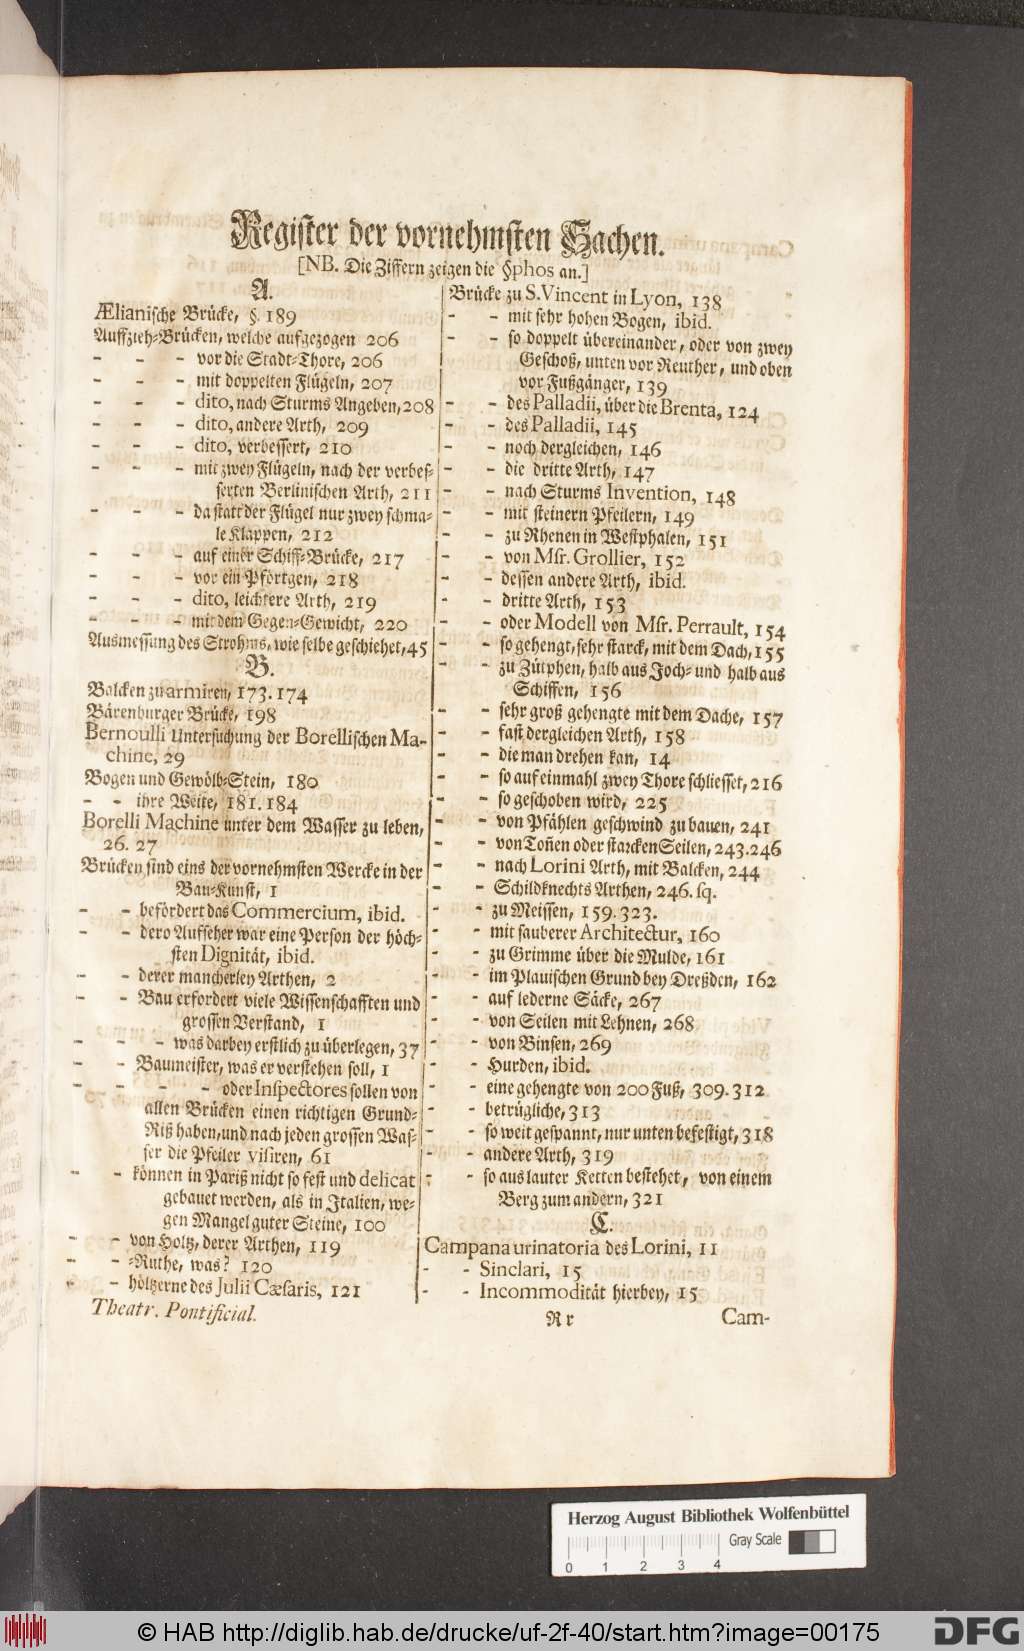 Register der vornehmsten Sachen.
[NB. Die Ziffern zeigen die §phos an.]
A.
Ælianische Brücke, §. 189
Auffzieh-Brücken, welche aufgezogen 206
- - - vor die Stadt-Thore, 206
- - - mit doppelten Flügeln, 207
- - - dito, nach Sturms Angeben, 208
- - - dito, andere Arth, 209
- - - dito, verbessert, 210
- - - mit zwey Flügeln, nach der verbes-
serten Berlinischen Arth, 211
- - - da statt der Flügel nur zwey schma-
le Klappen, 212
- - - auf einer Schiff-Brücke, 217
- - - vor ein Pförtgen, 218
- - - dito, leichtere Arth, 219
- - - mit dem Gegen-Gewicht, 220
Ausmessung des Strohms, wie selbe geschiehet, 45
B.
Balcken zu armiren, 173. 174
Bärenburger Brücke, 198
Bernoulli Untersuchung der Borellischen Ma-
chine, 29
Bogen und Gewölb-Stein, 180
- - ihre Weite, 181. 184
Borelli Machine unter dem Wasser zu leben,
26. 27
Brücken sind eins der vornehmsten Wercke in der
Bau-Kunst, 1
- - befördert das Commercium, ibid.
- - dero Aufseher war eine Person der höch-
sten Dignität, ibid.
- - derer mancherley Arthen, 2
- - Bau erfordert viele Wissenschafften und
grossen Verstand, 1
- - - was darbey erstlich zu überlegen, 37
- - Baumeister, was er verstehen soll, 1
- - - - oder Inspectores sollen von
allen Brücken einen richtigen Grund-
Riß haben, und nach jeden grossen Was-
ser die Pfeiler visiren, 61
- - können in Pariß nicht so fest und delicat
gebauet werden, als in Italien, we-
gen Mangel guter Steine, 100
- - von Holtz, derer Arthen, 119
- - -Ruthe, was? 120
- - höltzerne des Julii Cæsaris, 121
Theatr. Pontificial.
Brücke zu S. Vincent in Lyon, 138
- - mit sehr hohen Bogen, ibid.
- - so doppelt übereinander, oder von zwey
Geschoß, unten vor Reuther, und oben
vor Fußgänger, 139
- - des Palladii, über die Brenta, 124
- - des Palladii, 145
- - noch dergleichen, 146
- - die dritte Arth, 147
- - nach Sturms Invention, 148
- - mit steinern Pfeilern, 149
- - zu Rhenen in Westphalen, 151
- - von Msr. Grollier, 152
- - dessen andere Arth, ibid.
- - dritte Arth, 153
- - oder Modell von Msr. Perrault, 154
- - so gehengt, sehr starck, mit dem Dach, 155
- - zu Zütphen, halb aus Joch- und halb aus
Schiffen, 156
- - sehr groß gehengte mit dem Dache, 157
- - fast dergleichen Arth, 158
- - die man drehen kan, 14
- - so auf einmahl zwey Thore schliesset, 216
- - so geschoben wird, 225
- - von Pfählen geschwind zu bauen, 241
- - von Toñen oder starcken Seilen, 243. 246
- - nach Lorini Arth, mit Balcken, 244
- - Schildknechts Arthen, 246. sq.
- - zu Meissen, 159. 323.
- - mit sauberer Architectur, 160
- - zu Grimme über die Mulde, 161
- - im Plauischen Grund bey Dreßden, 162
- - auf lederne Säcke, 267
- - von Seilen mit Lehnen, 268
- - von Binsen, 269
- - Hurden, ibid.
- - eine gehengte von 200 Fuß, 309. 312
- - betrügliche, 313
- - so weit gespannt, nur unten befestigt, 318
- - andere Arth, 319
- - so aus lauter Ketten bestehet, von einem
Berg zum andern, 321
C.
Campana urinatoria des Lorini, 11
- - Sinclari, 15
- - Incommodität hierbey, 15
Rr
Cam-
Herzog August Bibliothek Wolfenbüttel
Gray Scale
0 1 2 3 4
© HAB http://diglib.hab.de/drucke/uf-2f-40/start.htm?image=00175
DFG